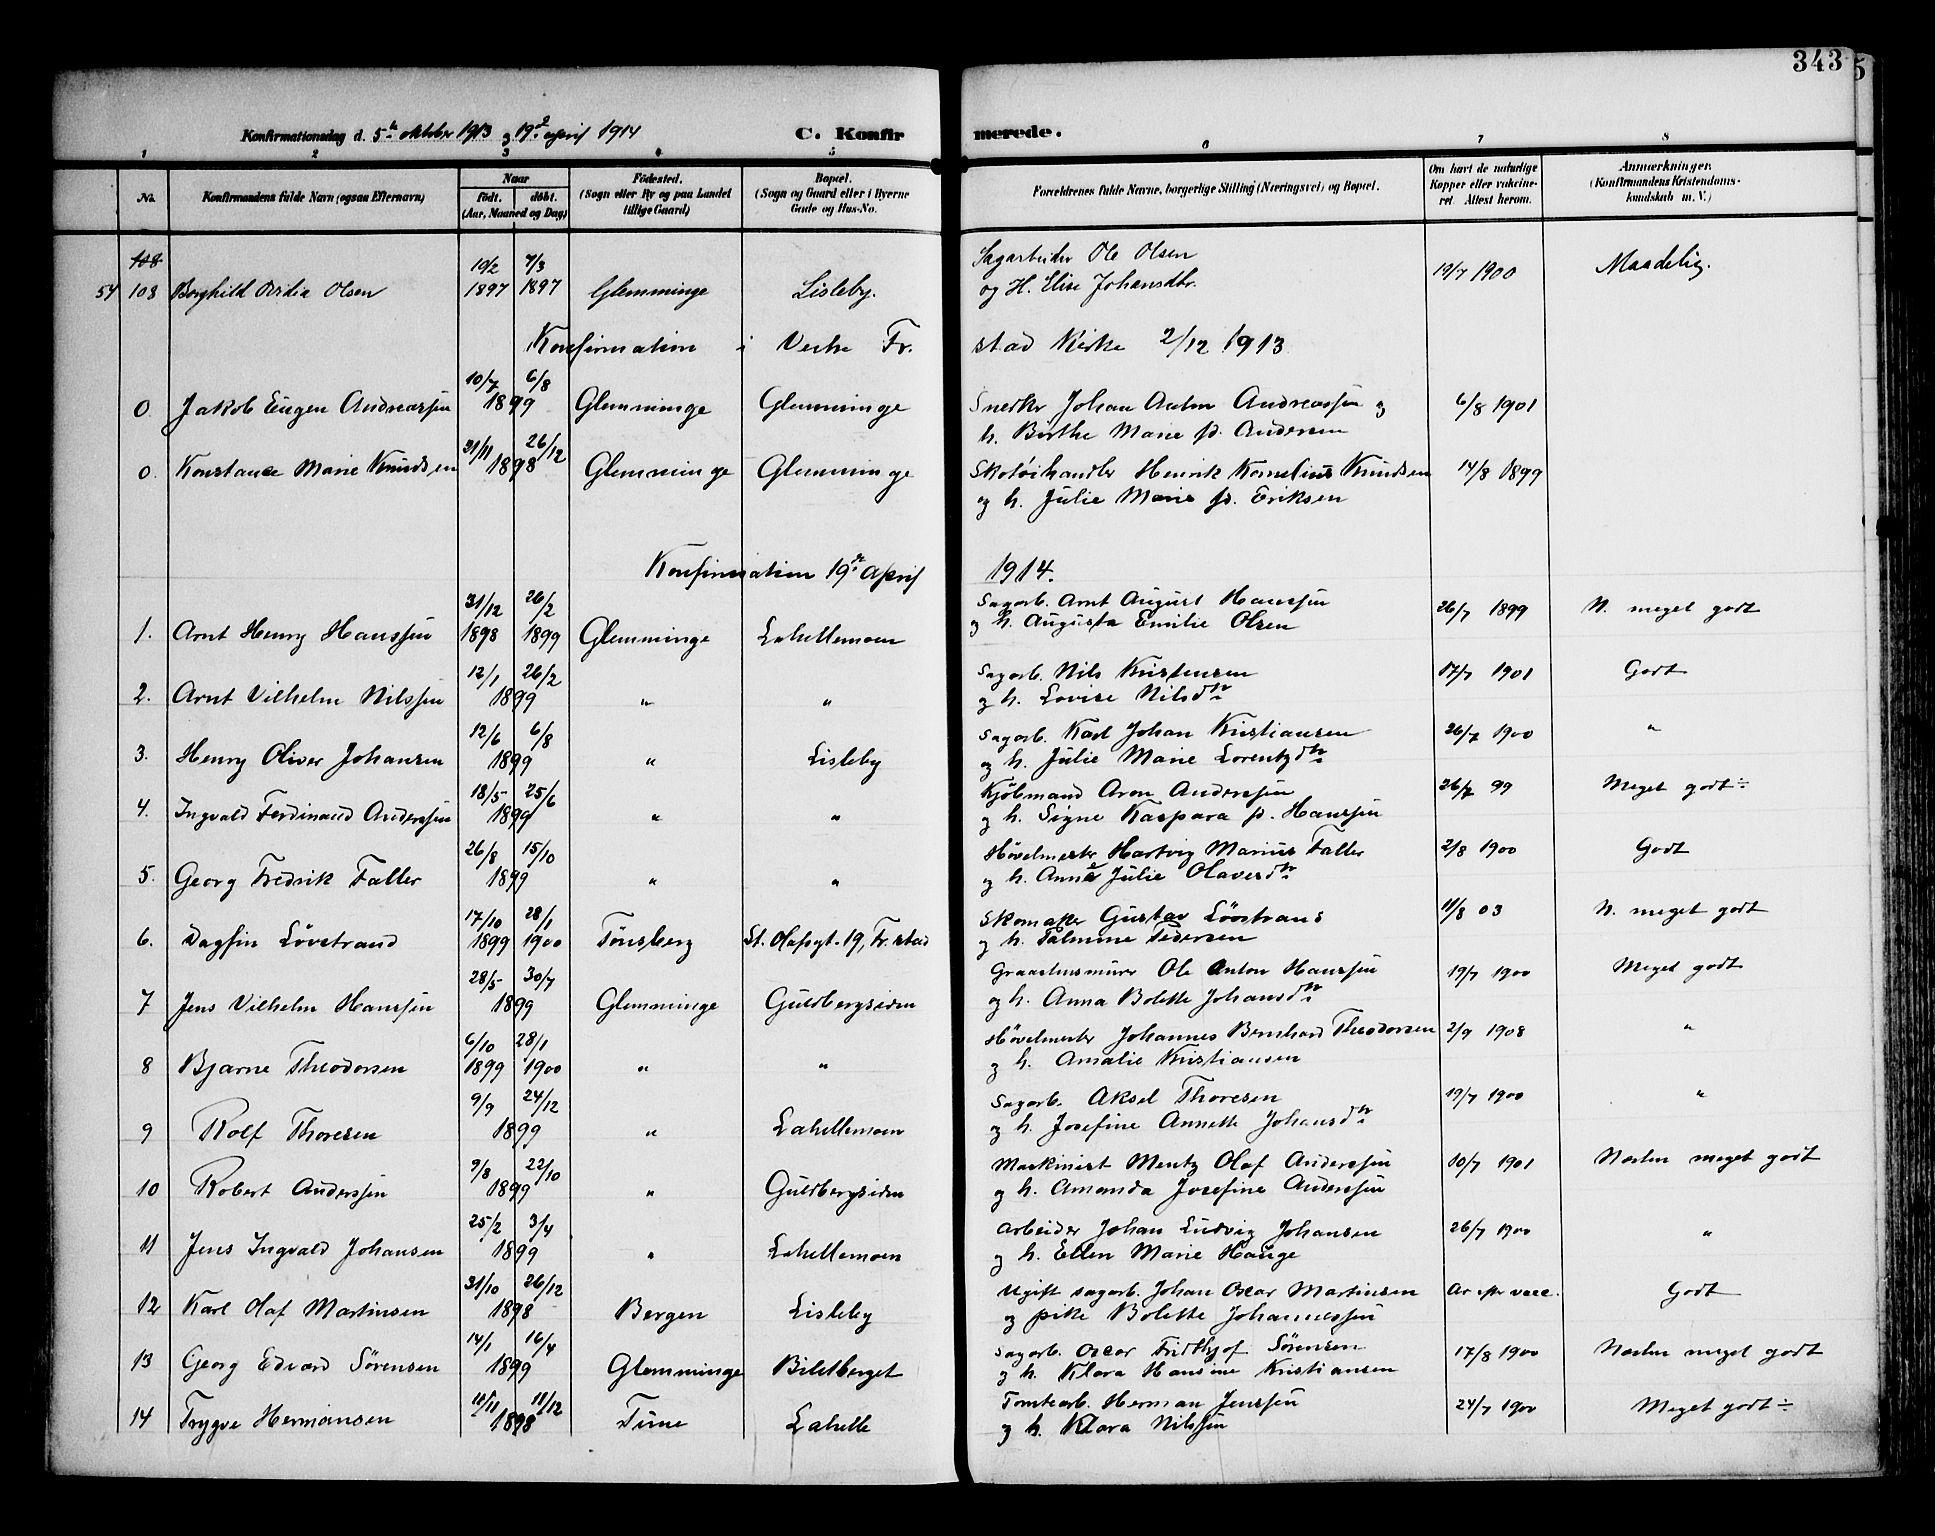 343
5
Konfirmationsdag d. 5te oktober 1913 og 19de april 1914
C. Konfirmerede.
1 2 3 4 5 6 7 8
No. Konfirmandens fulde Navn (ogsaa Efternavn) Naar født. døbt. (Aar, Maaned og Dag) Fødested. (Sogn eller By og paa Landet tillige Gaard) Bopæl. (Sogn og Gaard eller i Byerne Gade og Hus-No. Forældrenes fulde Navne, borgerlige Stilling (Næringsvei) og Bopæl. Om havt de naturlige Kopper eller vakcineret. Attest herom. Anmærkninger. (Konfirmandens Kristendomskundskab m. V.)
108 19/2 7/3 Sagarbeider Ole Olsen
54 108 Borghild Ovidia Olsen 1897 1897 Glemminge Lisleby. og H. Elise Johansdtr. 19/7 1900 Maadelig.
Konfirmation i Vestre Fr.stad Kirke 2/12 1913
10/7 6/8
0. Jakob Eugen Andreassen 1899 Glemminge Glemminge Snedkr Johan Anton Andreassen og 6/8 1901
h. Birthe Marie f. Andersen
21/11 26/12
0. Konstance Marie Knudsen 1898 Glemminge Glemminge Skotøihandler Henrik Kornelius Knudsen 14/8 1899
og h. Julie Marie f. Eriksen
Konfirmation 19de April 1914.
31/12 26/2 Sagarb. Arnt August Hanssen
1. Arnt Henry Hanssen 1898 1899 Glemminge Lahellemoen og h. Augusta Emilie Olsen 26/7 1899 N. meget godt
12/1 26/2 Sagarb. Nils Kristensen 17/7 1901 Godt
2. Arnt Vilhelm Nilssen 1899 " " og h. Lovise Nilsdtr
12/6 6/8 Sagarb. Karl Johan Kristiansen 26/7 1900 "
3. Henry Oliver Johansen 1899 " Lisleby og h. Julie Marie Lorentzdtr
18/5 25/6 Kjøbmand Aron Anderssen 26/7 99 Meget godt ÷
4. Ingvald Ferdinand Anderssen 1899 " " og h. Signe Kaspara f. Hanssen
26/8 15/10 Høvelmester Hartvig Marius Faller 2/8 1900 Godt
5. Georg Fredrik Faller 1899 " " og h. Anne Julie Olavesdtr
17/10 28/1 Skomaker Gustav Løvstrand 11/8 03 N. meget godt
6. Dagfin Løvstrand 1899 1900 Tønsberg St. Olafsgt. 19, Fr.stad og h. Talmine Pedersen
28/5 30/7 Graastensmurer Ole Anton Hanssen 19/7 1900 Meget godt
7 Jens Vilhelm Hanssen 1899 Glemminge Guldbergsiden og h. Anna Bolette Johansdtr
6/10 28/1 Høvelmester Johannes Bernhard Theodorsen 2/9 1908 "
8 Bjarne Theodorsen 1899 1900 " " og h. Amalie Kristiansen
9/9 24/12 Sagarb. Aksel Thoresen 19/7 1900 "
9 Rolf Thoresen 1899 " Lahellemoen og h. Josefine Annette Johansdtr
9/8 22/10 Maskinist Mentz Olaf Anderssen 10/7 1901 Næsten meget godt
10 Robert Anderssen 1899 " Guldbergsiden og h. Amanda Josefine Anderssen
25/2 3/4 Arbeider Johan Ludvig Johansen 26/7 1900 "
11 Jens Ingvald Johansen 1899 " Lahellemoen og h. Ellen Marie Hauge
31/10 26/12 Ugift sagarb. Johan Oscar Martinsen Ar efter vacc. Godt
12 Karl Olaf Martinsen 1898 Bergen Lisleby og pike Bolette Johannessen
14/1 16/4 Sagarb. Oscar Fridthjof Sørensen 17/8 1900 Næsten meget godt
13 Georg Edvard Sørensen 1899 Glemminge Bildtberget og h. Klara Hansine Kristiansen
10/11 11/12 Tomtearb. Herman Jenssen 24/7 1900 Meget godt ÷
14 Trygve Hermansen 1898 Tune Lahelle og h. Klara Nilssen